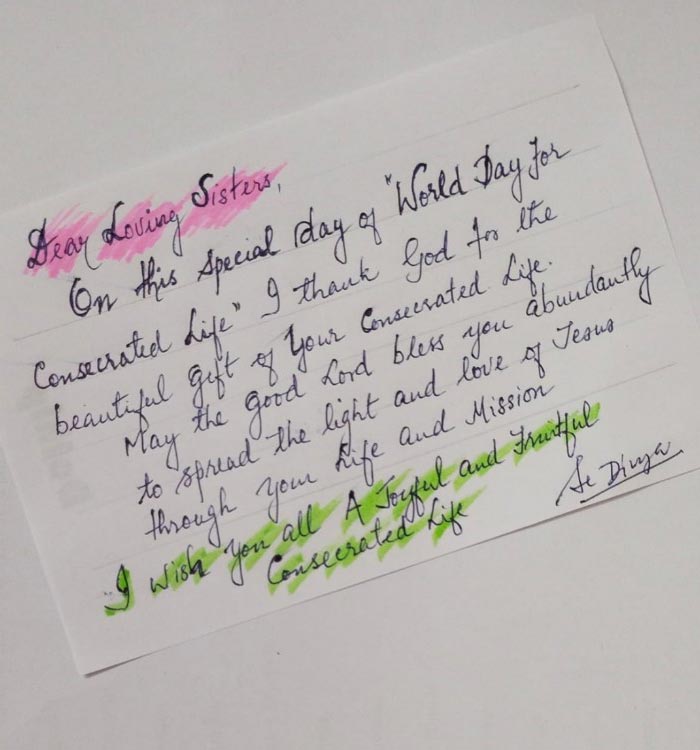 Dear Loving Sisters,
On this special day of "World Day for
Consecrated Life" I thank God for the
beautiful gift of Your Consecrated Life.
May the good Lord bless you abundantly
to spread the light and love of Jesus
through your Life and Mission
I wish You all A Joyful and Fruitful
Consecrated Life
Sr Divya